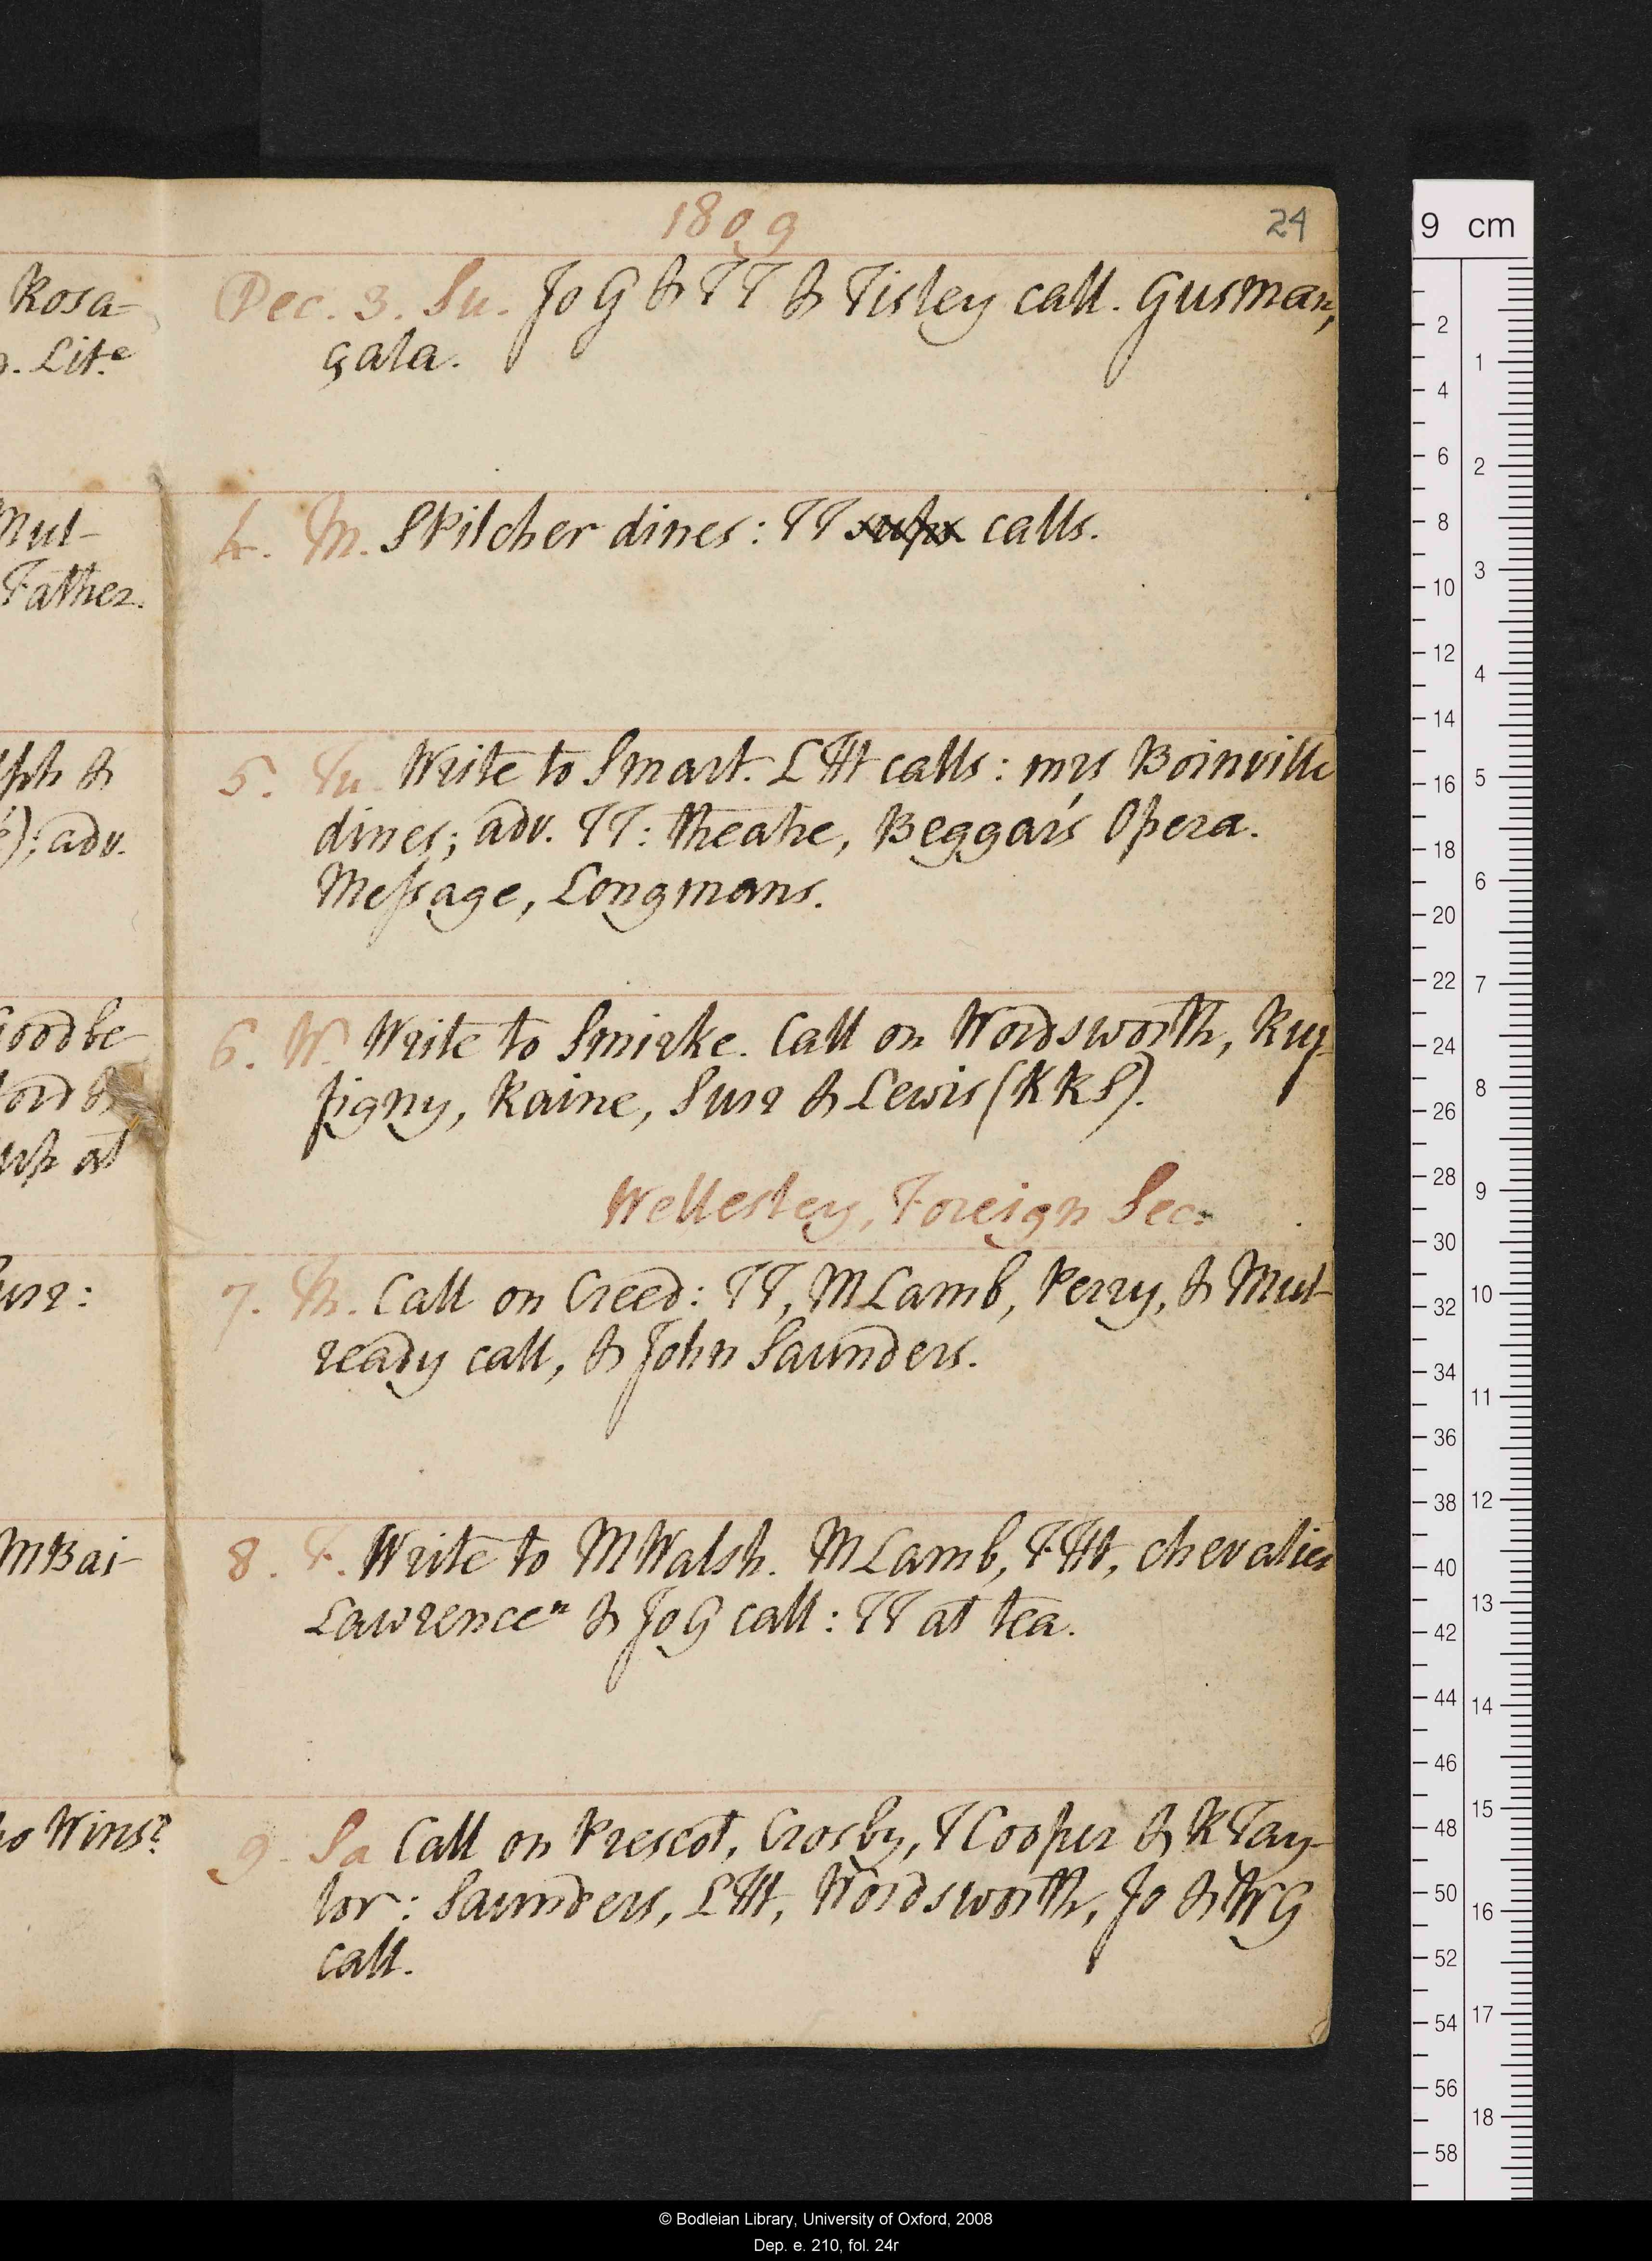 1809
24
Rosa-
. Lit.e
Dec. 3. Su. Jo G & TT & Tisley call. Gusman,
gala.
Mul-
Father.
4. M. S Pilcher dines: TT sups calls.
lph &
é); adv.
5. Tu. Write to Smart. L Ht calls: mrs Boinville
dines; adv. TT: theatre, Beggar's Opera.
Message, Longmans.
Goodbe-
ord &
up at
6. W. Write to Smirke. Call on Wordsworth, Rup-
pigny, Raine, Surr & Lewis (KKS).
Wellesley, Foreign Sec.
Surr:
7. Th. Call on Creed: TT, M Lamb, Perry, & Mul-
ready call, & John Saunders.
M Bai-
8. F. Write to M Walsh. M Lamb, F Ht, chevalier
Lawrence n & Jo G call: TT at tea.
no Winsr
9. Sa Call on Prescot, Crosby, T Cooper & R Tay-
lor: Saunders, L Ht, Wordsworth, Jo & W G
call.
9 cm
2
4
6
8
10
12
14
16
18
20
22
24
26
28
30
32
34
36
38
40
42
44
46
48
50
52
54
56
58
1
2
3
4
5
6
7
8
9
10
11
12
13
14
15
16
17
18
© Bodleian Library, University of Oxford, 2008
Dep. e. 210, fol. 24r